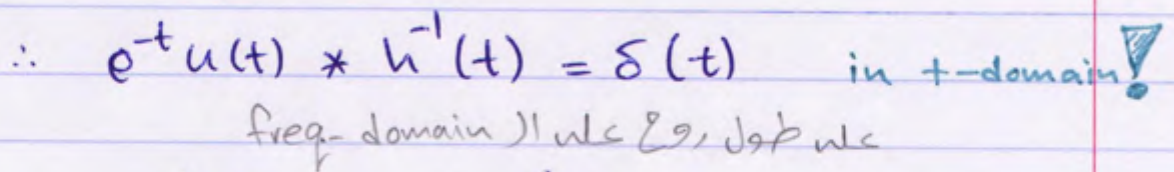 ∴ e^-t u(t) * h^-1(t) = δ(t) in t-domain!
على طول روح على ال freq-domain